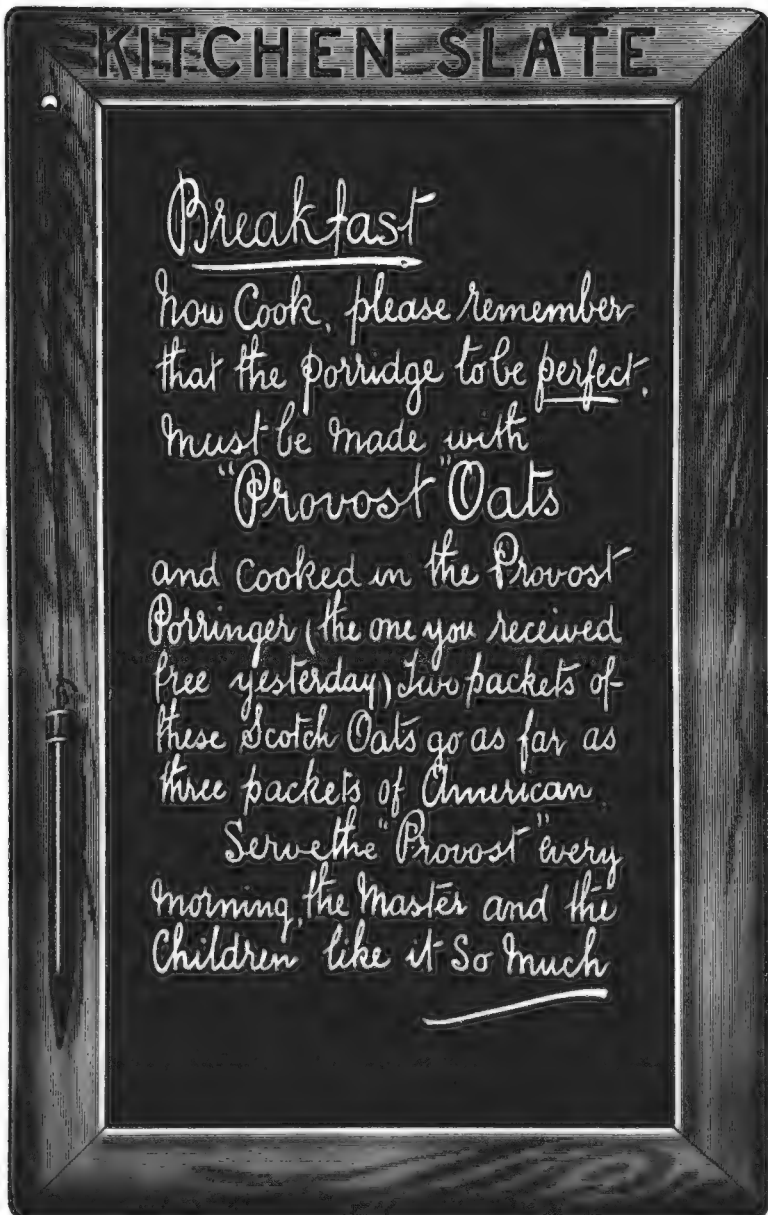 KITCHEN SLATE
Breakfast
Now Cook, please remember
that the porridge to be perfect,
must be made with
"Provost" Oats
and cooked in the Provost
Porringer (the one you received
free yesterday) Two packets of
these Scotch Oats go as far as
three packets of American.
Serve the "Provost" every
morning, the Master and the
Children like it So Much